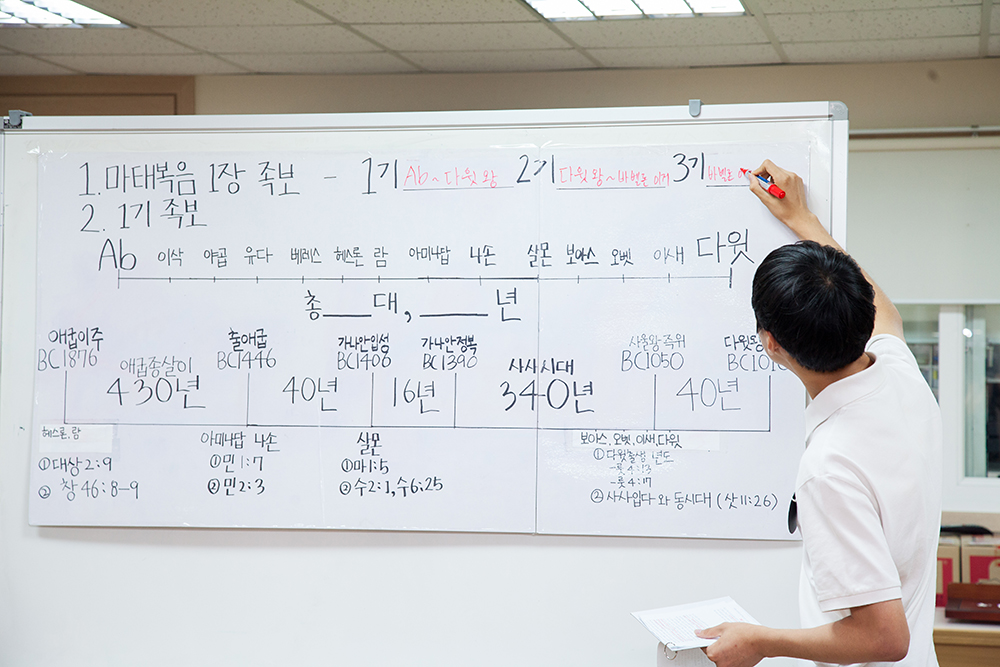 1. 마태복음 1장 족보 - 1기 Ab~다윗 왕 2기 다윗 왕~바벨론 이거 3기 바벨론
2. 1기 족보
Ab 이삭 야곱 유다 베레스 헤스론 람 아미나답 나손 살몬 보아스 오벳 이새 다윗
총___대, ____년
애굽이주 출애굽 가나안입성 가나안정복 사울왕 즉위 다윗왕
BC1876 BC1446 BC1406 BC1390 BC1050 BC1010
애굽종살이 사사시대
430년 40년 16년 340년 40년
헤스론, 람 아미나답 나손 살몬 보아스, 오벳, 이새, 다윗
①대상 2:9 ①민 1:7 ①마1:5 ①다윗출생 년도
-룻 4:13
-룻 4:17
② 창 46:8-9 ②민 2:3 ②수2:1, 수6:25 ②사사입다와 동시대 (삿11:26)